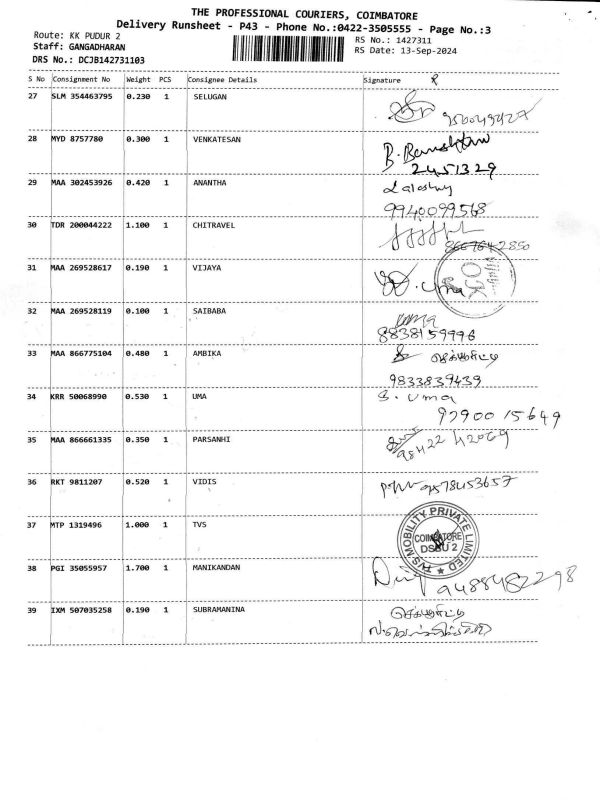 THE PROFESSIONAL COURIERS, COIMBATORE
Delivery Runsheet - P43 - Phone No.:0422-3505555 - Page No.:3
Route: KK PUDUR 2
Staff: GANGADHARAN
DRS No.: DCJB142731103
RS No.: 1427311
RS Date: 13-Sep-2024
S No Consignment No Weight PCS Consignee Details Signature
27 SLM 354463795 0.230 1 SELUGAN
28 MYD 8757780 0.300 1 VENKATESAN
2451329
29 MAA 302453926 0.420 1 ANANTHA
9940099568
30 TDR 200044222 1.100 1 CHITRAVEL
8667642850
31 MAA 269528617 0.190 1 VIJAYA
Uma
32 MAA 269528119 0.100 1 SAIBABA
8838159996
33 MAA 866775104 0.480 1 AMBIKA
9833839439
34 KRR 50068990 0.530 1 UMA
S. uma
9790015649
35 MAA 866661335 0.350 1 PARSANHI
9842242069
36 RKT 9811207 0.520 1 VIDIS
9578453657
37 MTP 1319496 1.000 1 TVS
TVS MOBILITY PRIVATE LIMITED
COIMBATORE
DSBU 2
38 PGI 35055957 1.700 1 MANIKANDAN
9488482298
39 IXM 507035258 0.190 1 SUBRAMANINA